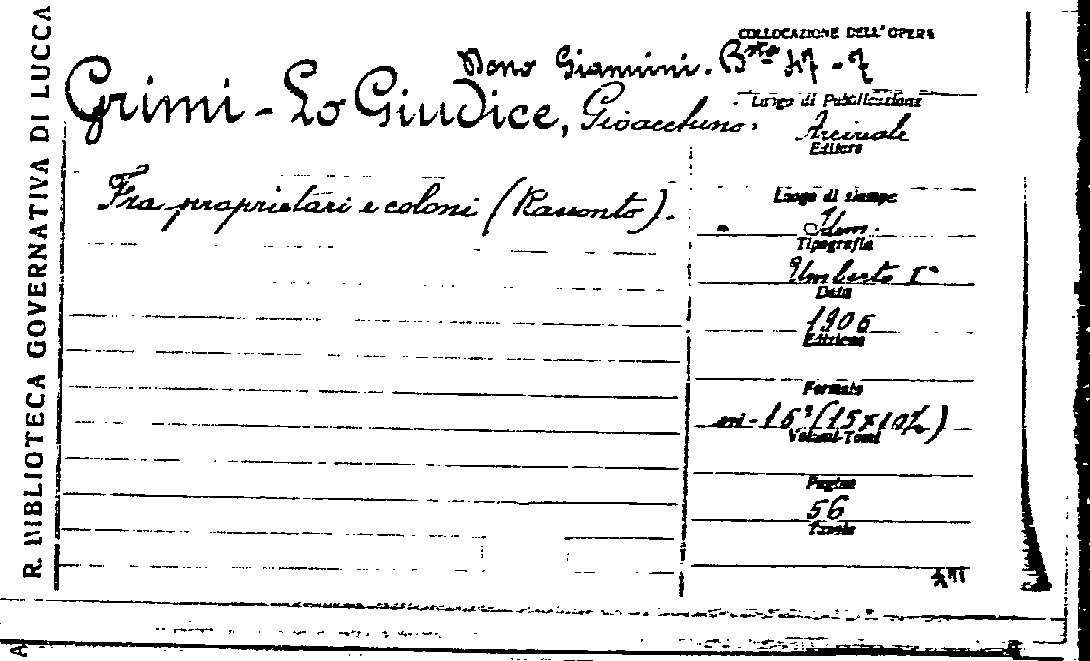 R. BIBLIOTECA GOVERNATIVA DI LUCCA
COLLOCAZIONE DELL'OPERA
Dono Giannini. Bta 47-7
Grimi-Lo Giudice, Gioacchino.
Luogo di Pubblicazione
Acireale
Editore
Fra proprietari e coloni (Racconto).
Luogo di stampa
Idem.
Tipografia
Umberto I°
Data
1906
Edizione
Formato
in-16° (15x10½)
Volumi-Tomi
Pagine
56
Tavole